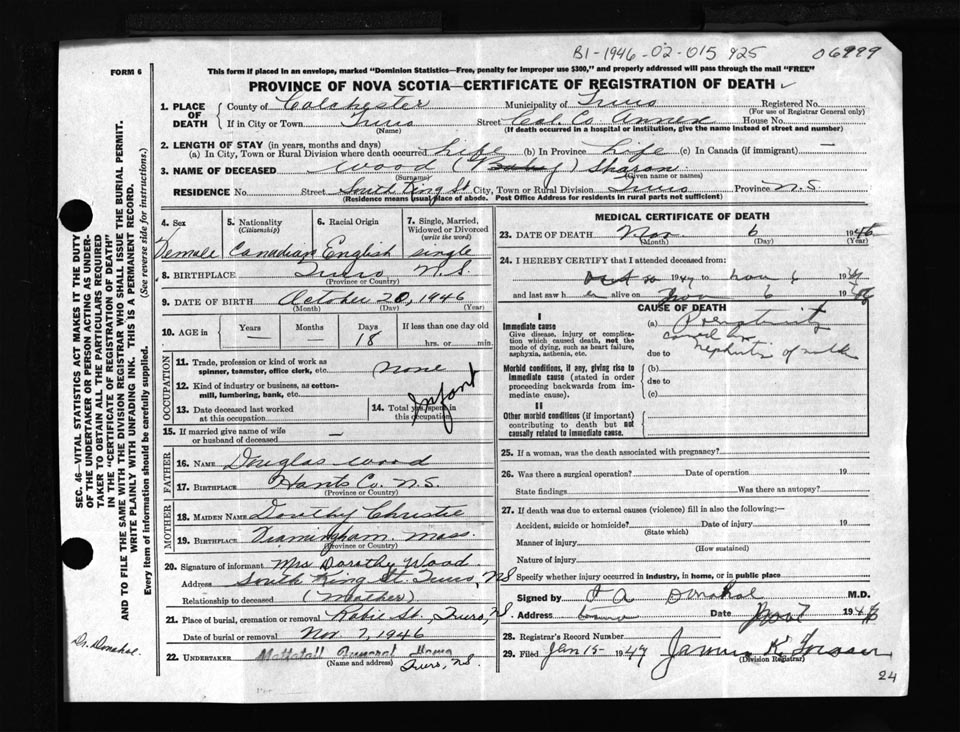 B1-1946-02-015425 06999
FORM 6
This form if placed in an envelope, marked "Dominion Statistics—Free, penalty for improper use $300," and properly addressed will pass through the mail "FREE"
PROVINCE OF NOVA SCOTIA—CERTIFICATE OF REGISTRATION OF DEATH
1. PLACE OF DEATH County of Colchester Municipality of Truro Registered No.
(For use of Registrar General only)
If in City or Town Truro Street Col. Co. Annex House No.
(Name) (If death occurred in a hospital or institution, give the name instead of street and number)
2. LENGTH OF STAY (in years, months and days)
(a) In City, Town or Rural Division where death occurred Life (b) In Province Life (c) In Canada (if immigrant) —
3. NAME OF DECEASED Wood (Baby) Sharon
(Surname) (Given name or names)
RESIDENCE No. Street South King St City, Town or Rural Division Truro Province N.S.
(Residence means usual place of abode. Post Office Address for residents in rural parts not sufficient)
4. Sex 5. Nationality (Citizenship) 6. Racial Origin 7. Single, Married, Widowed or Divorced (write the word)
Female Canadian English single
8. BIRTHPLACE Truro N.S.
(Province or Country)
9. DATE OF BIRTH October 20, 1946
(Month) (Day) (Year)
10. AGE in Years Months Days If less than one day old
— — 18 hrs. or min.
OCCUPATION
11. Trade, profession or kind of work as spinner, teamster, office clerk, etc. none
12. Kind of industry or business, as cotton-mill, lumbering, bank, etc.
Infant
13. Date deceased last worked at this occupation 14. Total yrs. spent in this occupation
15. If married give name of wife or husband of deceased —
FATHER
16. NAME Douglas Wood
17. BIRTHPLACE Hants Co. N.S.
(Province or Country)
MOTHER
18. MAIDEN NAME Dorothy Christie
19. BIRTHPLACE Framingham. Mass.
(Province or Country)
20. Signature of informant Mrs Dorothy Wood
Address South King St. Truro, NS
Relationship to deceased (Mother)
21. Place of burial, cremation or removal Robie St., Truro, NS
Date of burial or removal Nov 7, 1946
22. UNDERTAKER Mattatall Funeral Home
(Name and address) Truro, NS.
MEDICAL CERTIFICATE OF DEATH
23. DATE OF DEATH Nov. 6 1946
(Month) (Day) (Year)
24. I HEREBY CERTIFY that I attended deceased from:
Oct 20 1947 to nov 6 19
and last saw her alive on Nov 6 19
CAUSE OF DEATH
I
Immediate cause
Give disease, injury or complication which caused death, not the mode of dying, such as heart failure, asphyxia, asthenia, etc.
(a) Prematurity
due to
Morbid conditions, if any, giving rise to immediate cause (stated in order proceeding backwards from immediate cause).
(b)
due to
(c)
II
Other morbid conditions (if important) contributing to death but not causally related to immediate cause.
25. If a woman, was the death associated with pregnancy?
26. Was there a surgical operation? Date of operation 19
State findings Was there an autopsy?
27. If death was due to external causes (violence) fill in also the following:—
Accident, suicide or homicide? Date of injury 19
(State which)
Manner of injury
(How sustained)
Nature of injury
Specify whether injury occurred in industry, in home, or in public place
Signed by Donahoe M.D.
Address Truro Date Nov 7 194
28. Registrar's Record Number
29. Filed Jan 15- 1947 James K.
(Division Registrar)
24
SEC. 46—VITAL STATISTICS ACT MAKES IT THE DUTY
OF THE UNDERTAKER OR PERSON ACTING AS UNDER-
TAKER TO OBTAIN ALL THE PARTICULARS REQUIRED
IN THE "CERTIFICATE OF REGISTRATION OF DEATH"
AND TO FILE THE SAME WITH THE DIVISION REGISTRAR WHO SHALL ISSUE THE BURIAL PERMIT.
WRITE PLAINLY WITH UNFADING INK. THIS IS A PERMANENT RECORD.
Every item of information should be carefully supplied. (See reverse side for instructions.)
Dr. Donahoe.